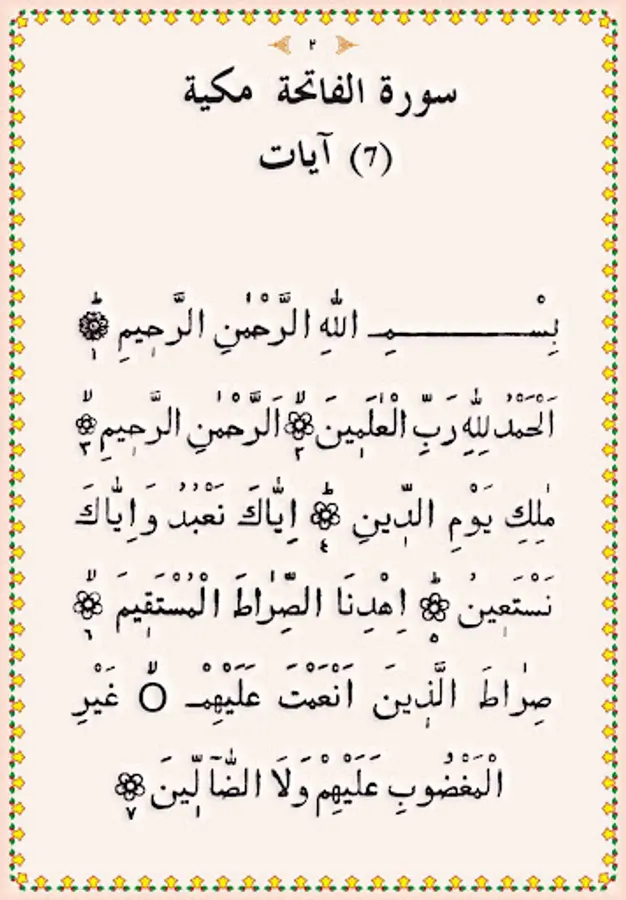 ٢
سورة الفاتحة مكية
(7) آيات
بِسْــــــــمِ اللّٰهِ الرَّحْمٰنِ الرَّحٖيمِ ١
اَلْحَمْدُ لِلّٰهِ رَبِّ الْعٰلَمٖينَ ٢ اَلرَّحْمٰنِ الرَّحٖيمِ ٣
مٰلِكِ يَوْمِ الدّٖينِ ٤ اِيَّاكَ نَعْبُدُ وَاِيَّاكَ
نَسْتَعٖينُ ٥ اِهْدِنَا الصِّرَاطَ الْمُسْتَقٖيمَ ٦
صِرَاطَ الَّذٖينَ اَنْعَمْتَ عَلَيْهِمْ غَيْرِ
الْمَغْضُوبِ عَلَيْهِمْ وَلَا الضَّٓالّٖينَ ٧